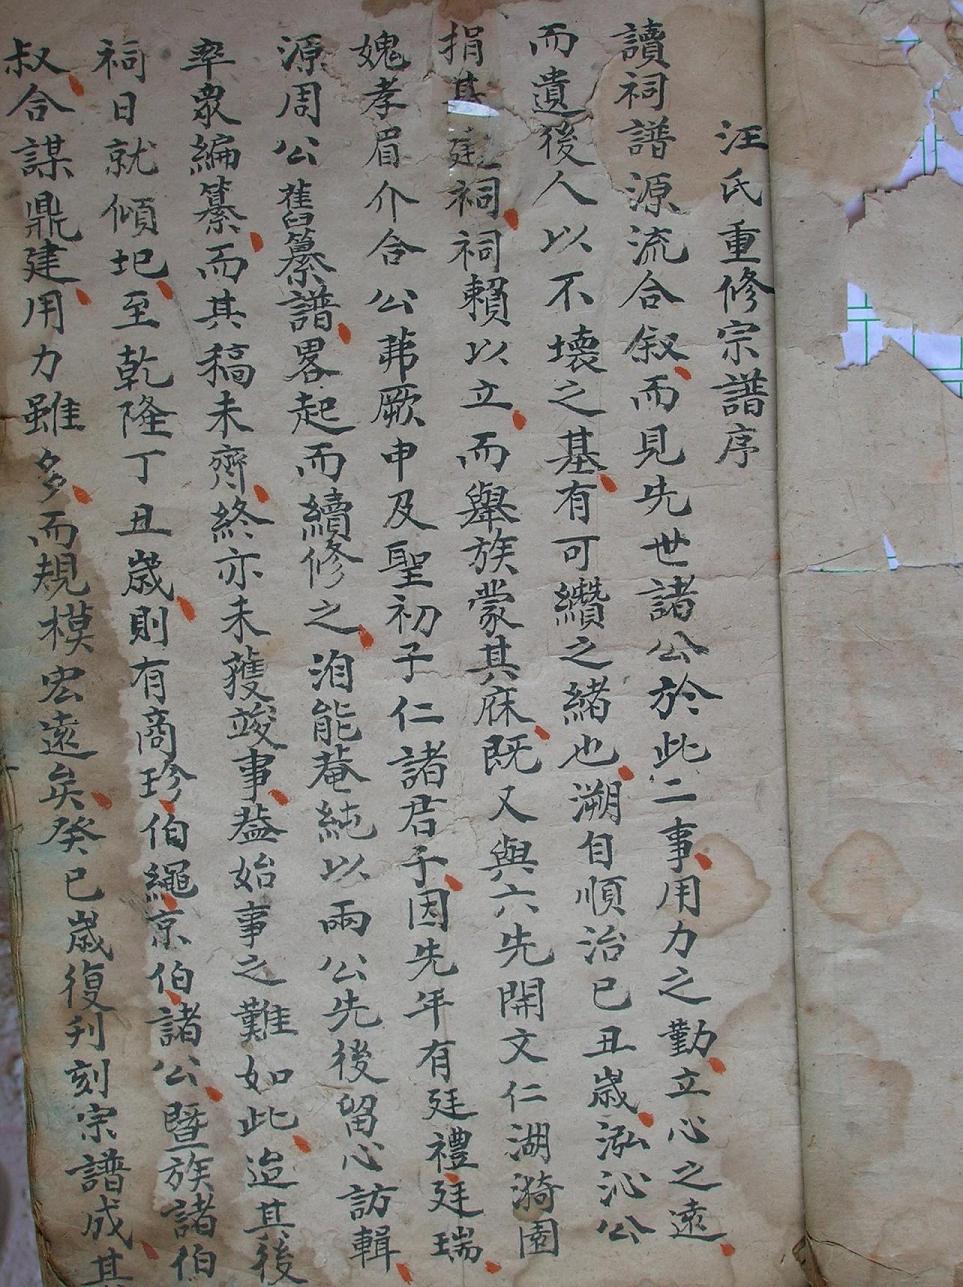 汪氏重修宗譜序
讀祠譜源流合叙而見先世諸公於此二事用力之勤立心之遠
而遺後人以不壞之基有可纘之緒也溯自順治己丑歲泓沁公
捐其建祠祠賴以立而舉族蒙其庥既又與六先開文仁湖漪園
媿孝眉介合公茀厥申及聖初子仁諸君子因先年有廷禮廷瑞
源周公舊纂譜畧起而續修之洎能菴純以兩公先後留心訪輯
率衆編纂而其稿未齊終亦未蒦竣事葢始事之難如此迨其後
祠日就傾圯至乾隆丁丑歲則有商珍伯繩京伯諸公暨族諸伯
叔合謀鼎建用力雖多而規模宏遠矣癸巳歲復刋刻宗譜成其